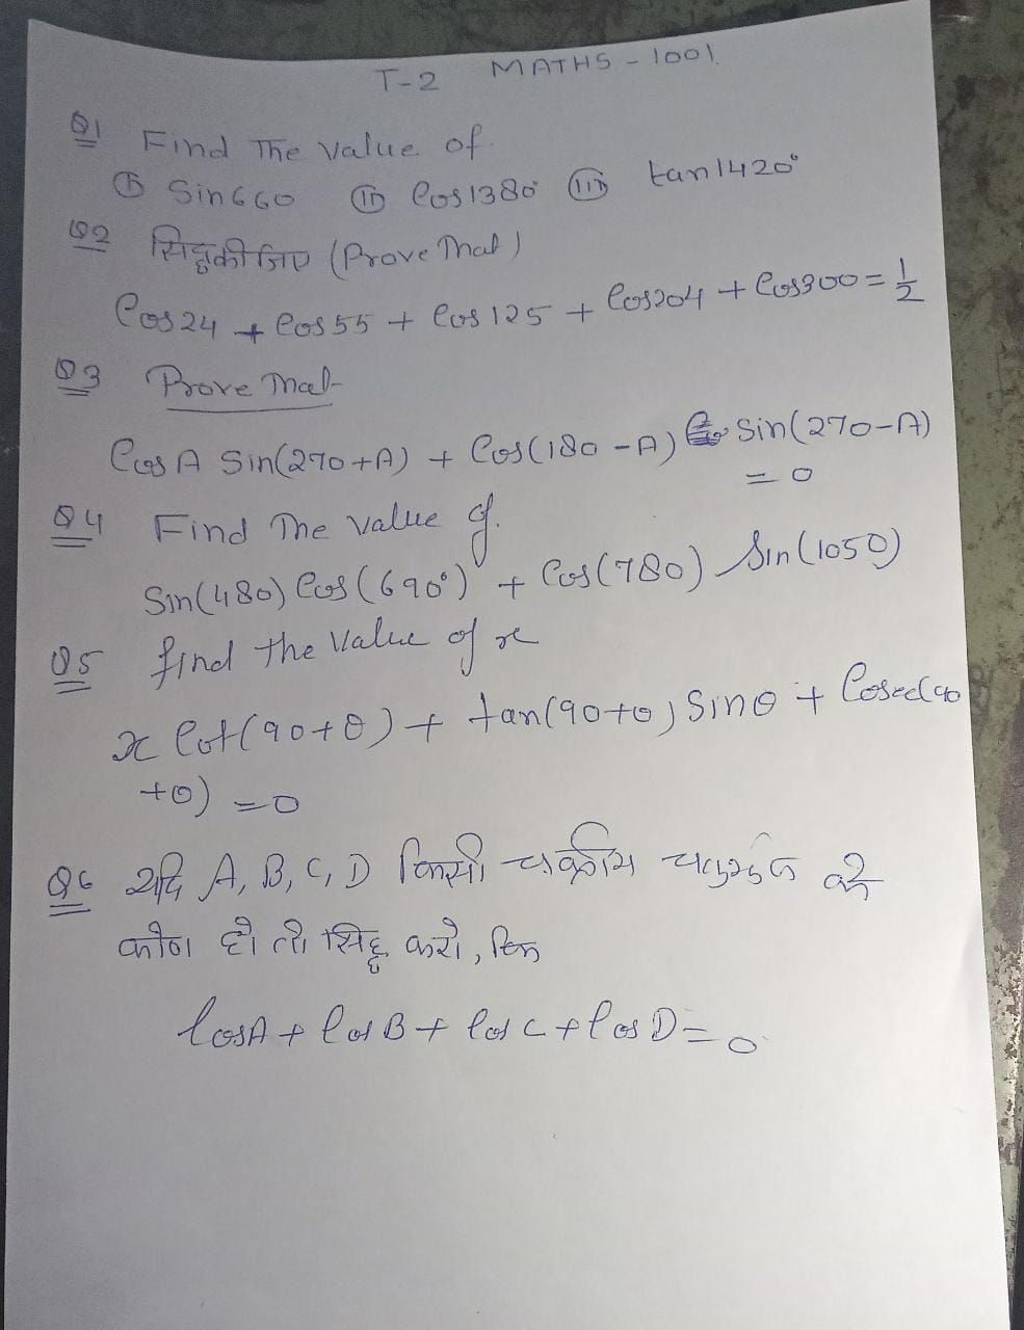 T-2 MATHS - 1001
Q1 Find The value of
(i) Sin 660 (ii) Cos 1380° (iii) tan 1420°
Q2 सिद्ध कीजिए (Prove That)
Cos 24 + Cos 55 + Cos 125 + Cos 204 + Cos 300 = 1/2
Q3 Prove That
Cos A Sin(270+A) + Cos(180-A) Sin(270-A)
= 0
Q4 Find The value of.
Sin(480) Cos(690°) + Cos(780) Sin(1050)
Q5 find the Value of x
x Cot(90+θ) + tan(90+θ) Sinθ + Cosec(90
+θ) = 0
Q6 यदि A, B, C, D किसी चक्रीय चतुर्भुज के
कोण हो तो सिद्ध करो, कि
CosA + Cos B + Cos C + Cos D = 0